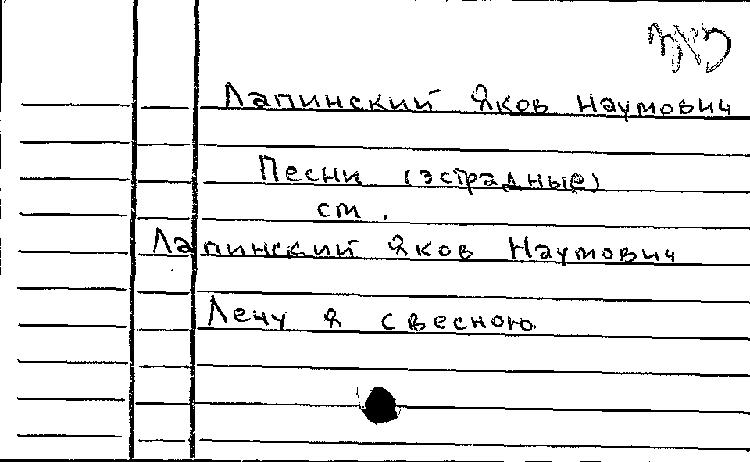 Лапинский Яков Наумович
Песни (эстрадные)
см.
Лапинский Яков Наумович
Лечу я с весною